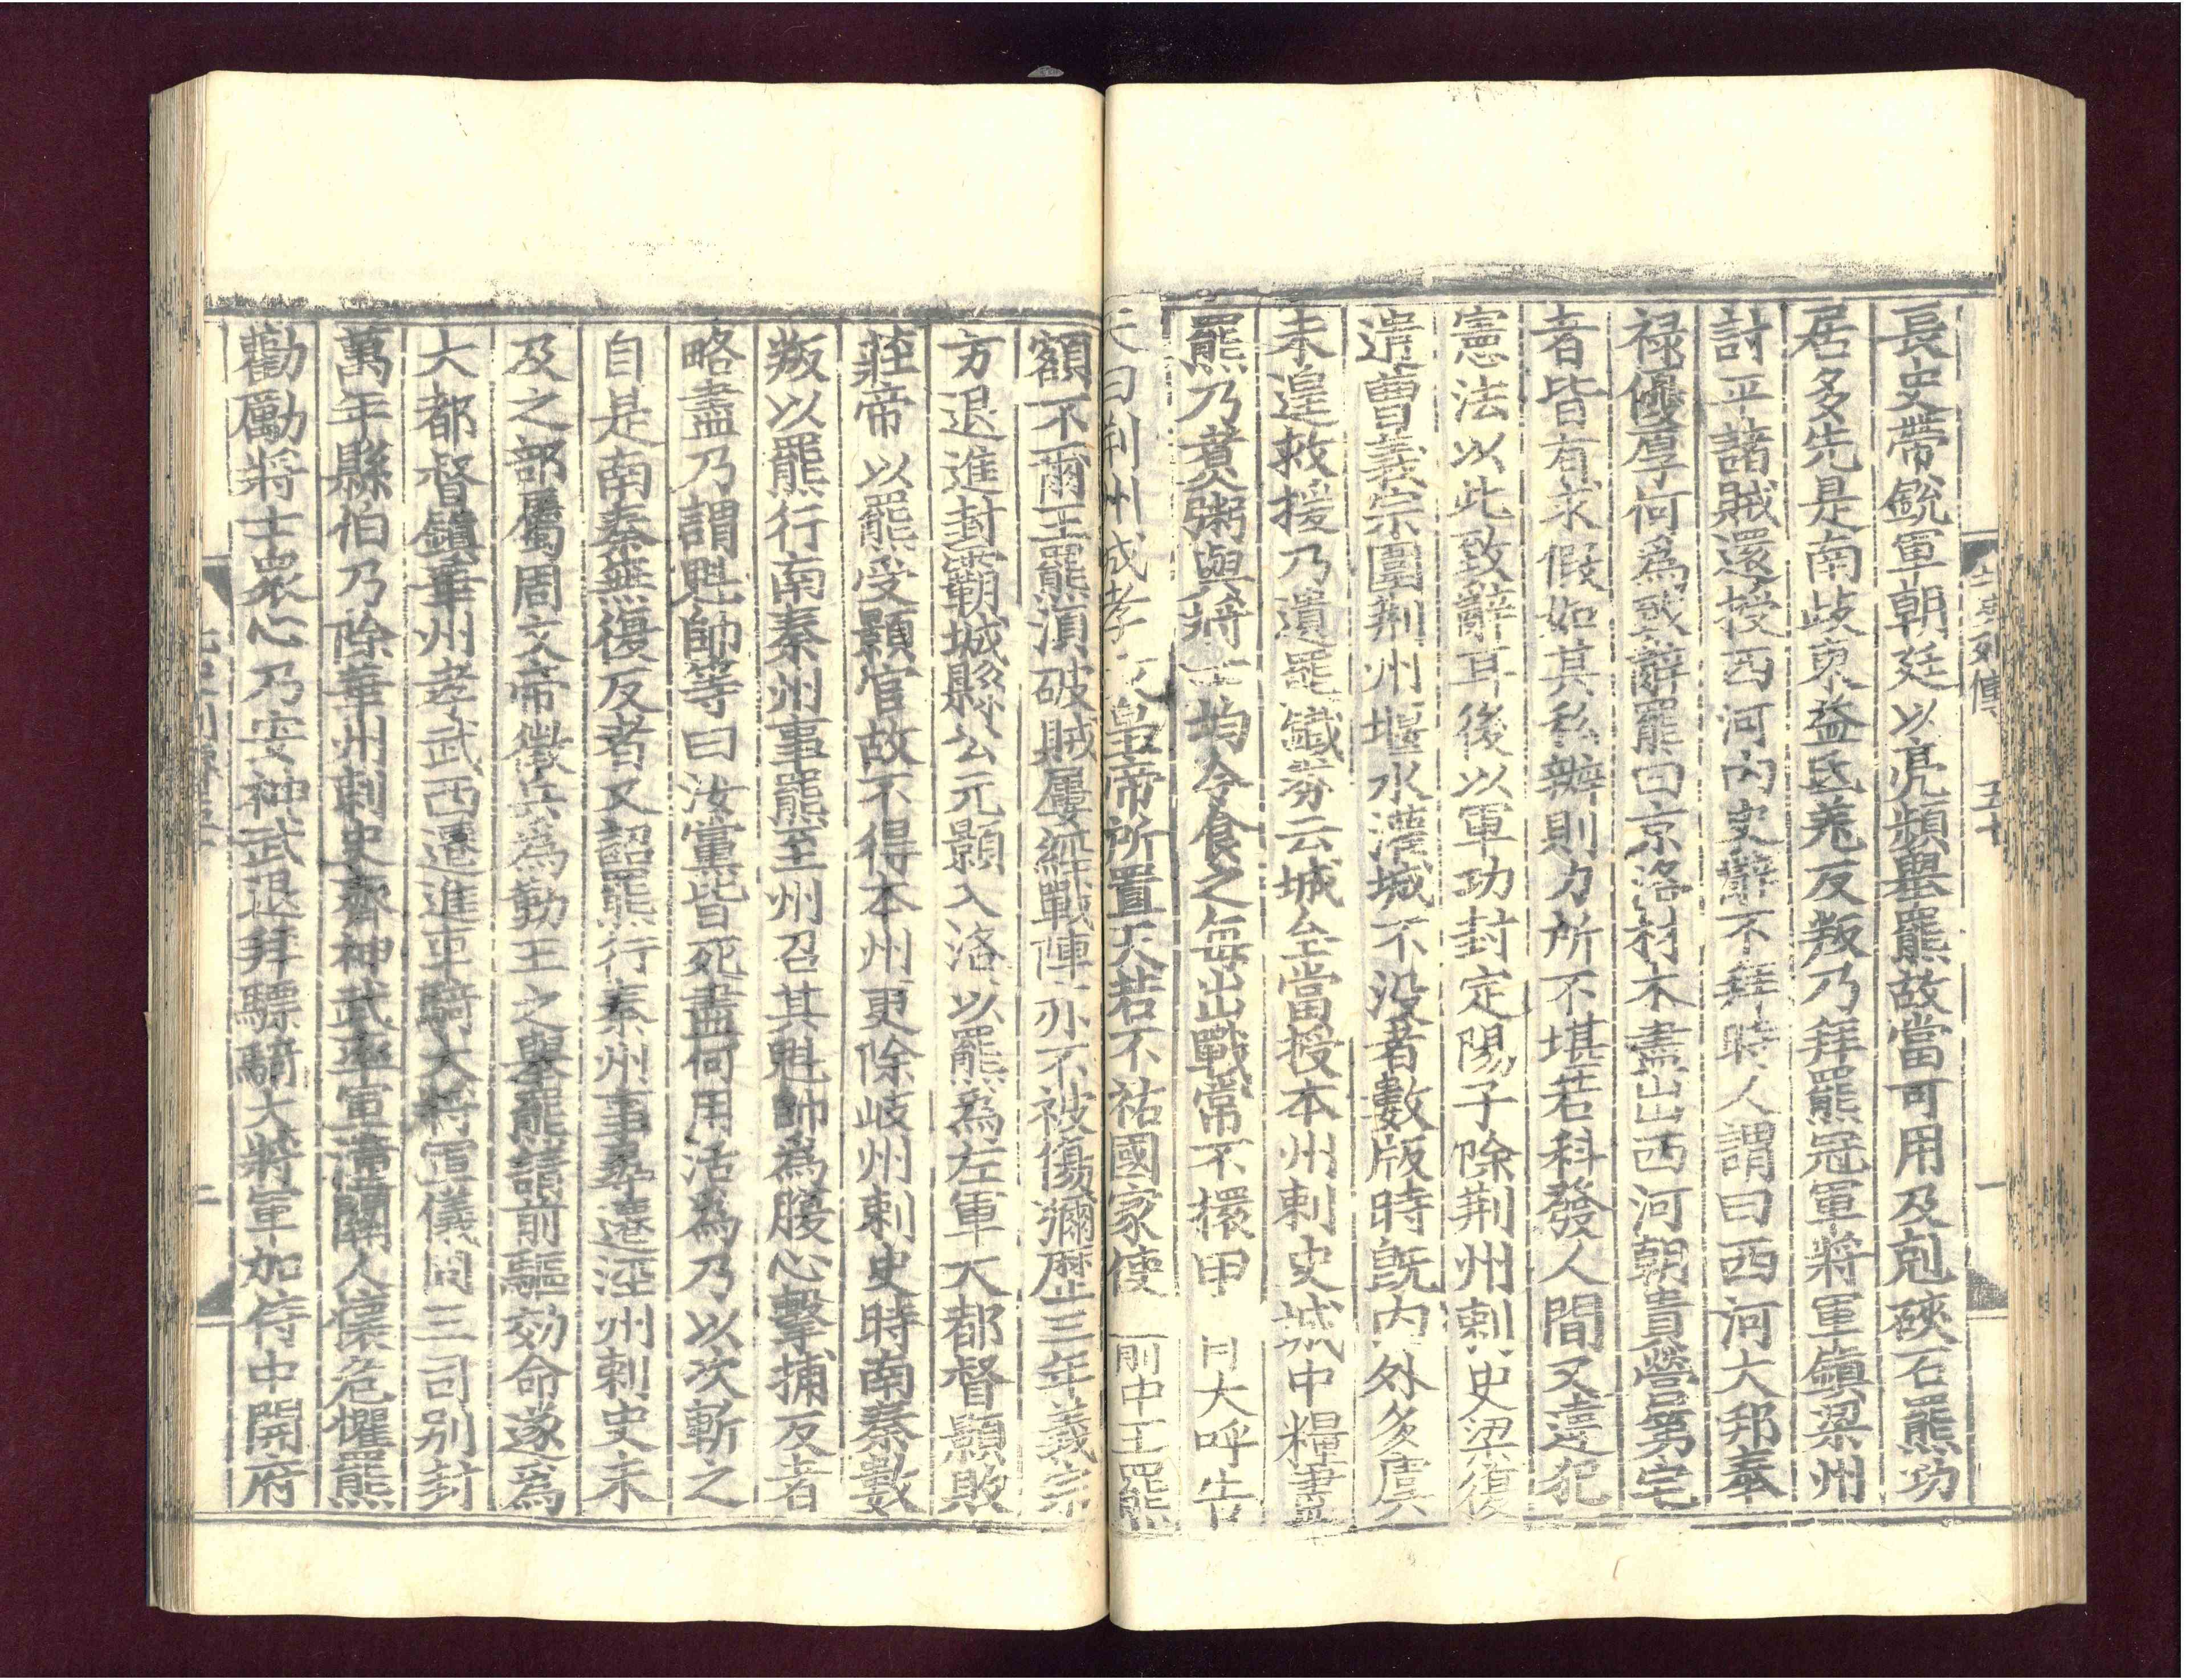 北史列傳 五十 一
長史帶銳軍朝廷以亮頻舉羆故當可用及剋硤石羆功
居多先是南岐東益氐羌反叛乃拜羆冠軍將軍鎮梁州
討平諸賊還授西河內史辭不拜時人謂曰西河大邦奉
祿優厚何爲致辭羆曰京洛材木盡出西河朝貴營第宅
者皆有求假如其私辦則力所不堪若科發人間又違犯
憲法以此致辭耳後以軍功封定陽子除荊州刺史梁復
遣曹義宗圍荊州堰水灌城不没者數版時旣內外多虞
未遑救援乃遺羆鐵券云城全當授本州刺史城中糧盡
羆乃煑粥與將士均分食之每出戰常不擐甲 大呼告
天曰荊州城孝文皇帝所置天若不祐國家使 箭中王羆
額不爾王羆湏破賊屢經戰陣亦不被傷彌歷三年義宗
方退進封霸城縣公元顥入洛以羆爲左軍大都督顥敗
莊帝以羆受顥官故不得本州更除岐州刺史時南秦數
叛以羆行南秦州事羆至州召其魁帥爲腹心擊捕反者
略盡乃謂魁帥等曰汝黨皆死盡何用活爲乃以次斬之
自是南秦無復反者又詔羆行秦州事尋遷涇州刺史未
及之部屬周文帝徵兵爲勤王之舉羆請前驅効命遂爲
大都督鎮華州孝武西遷進車騎大將軍儀同三司别封
萬年縣伯乃除華州刺史齊神武率軍潼關人懷危懼羆
勸勵將士衆心乃安神武退拜驃騎大將軍加侍中開府
二